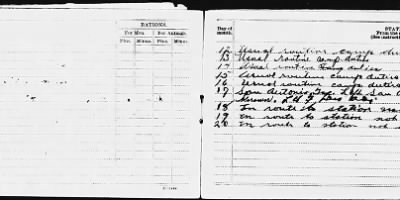 RATIONS.
For Men. For Animals.
Plus. Minus. Plus. Minus.
Day of month.
STAT
From the
(See instruct
12 Usual routine camp duties
13 Usual routine camp duties
14 Usual routine camp duties
15 Usual routine camp duties
16 Usual routine camp duties
17 San Antonio, Tex. Left San A
18 En route to station
19 En route to station not
20 En route to station not